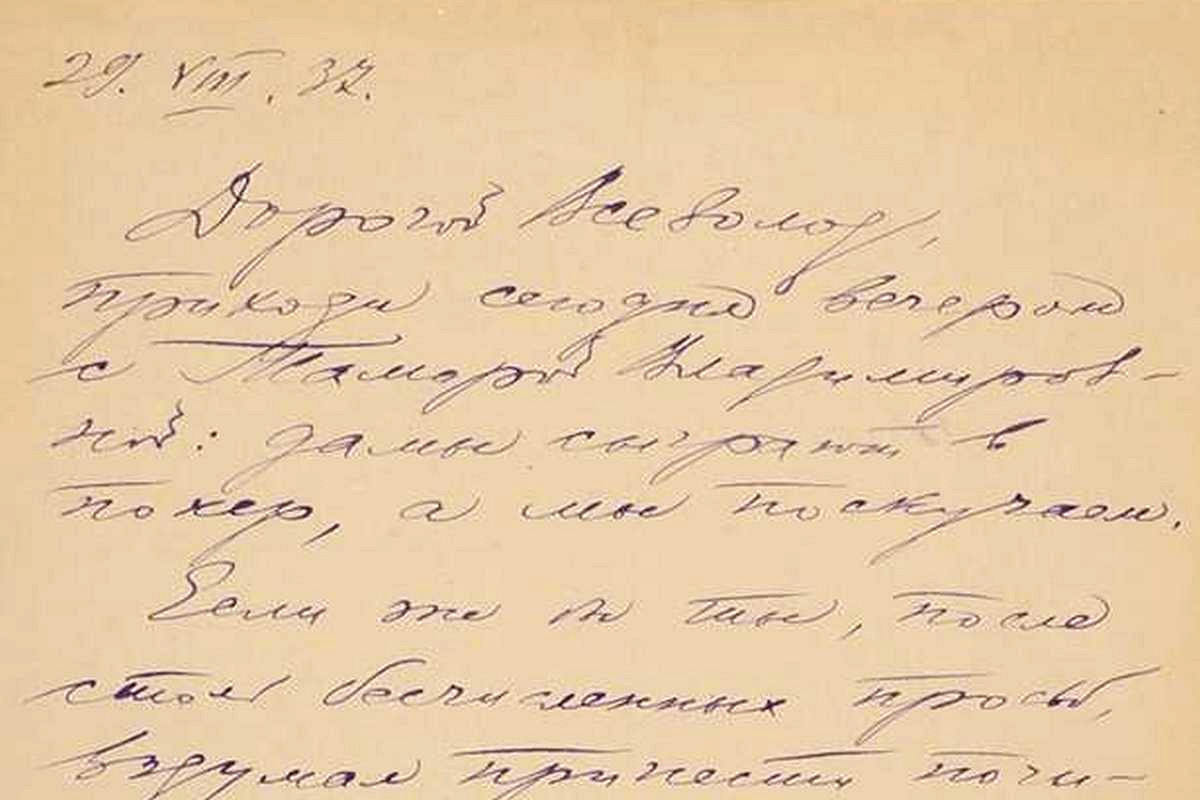 29. VIII. 37.
Дорогой Всеволод,
приходи сегодня вечером
с Тамарой Владимиров-
ной: дамы сыграют в
покер, а мы поскучаем.
Если же б ты, после
столь бесчисленных просьб,
вздумал принести почи-